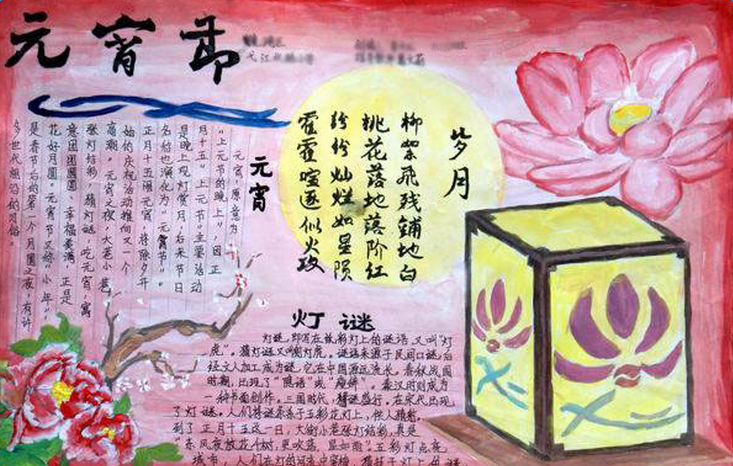 元宵節
岁月
柳絮飛残鋪地白
桃花落地落阶红
纷纷灿烂如星陨
霍霍喧逐似火攻
元宵
元宵，原意为
"上元节的晚上"，因正
月十五"上元节"主要活动
是晚上观灯赏月，后来节日
名称也演化为"元宵节"。
正月十五闹元宵，将除夕开
始的庆祝活动推向又一个
高潮。元宵之夜，大街小巷
张灯结彩，猜灯谜，吃元宵，寓
意团团圆圆、幸福美满，正是
花好月圆。元宵节又称"小年"，
是春节后的第一个月圆之夜，有许
多世代相沿的习俗。
灯谜
灯谜，即写在彩灯上的谜语，又叫"灯
虎"。猜灯谜又叫射灯虎。谜语来源于民间口谜，后
经文人加工成为谜。它在中国源远流长。春秋战国
时期，出现了"隐语"或"廋辞"。秦汉时则成为
一种书面创作。三国时代，猜谜盛行。在宋代出现
了灯谜。人们将谜条系于五彩花灯上，供人猜射。
到了正月十五这一日，大街小巷张灯结彩，真是
"东风夜放花千树，更吹落，星如雨"。五彩灯点亮